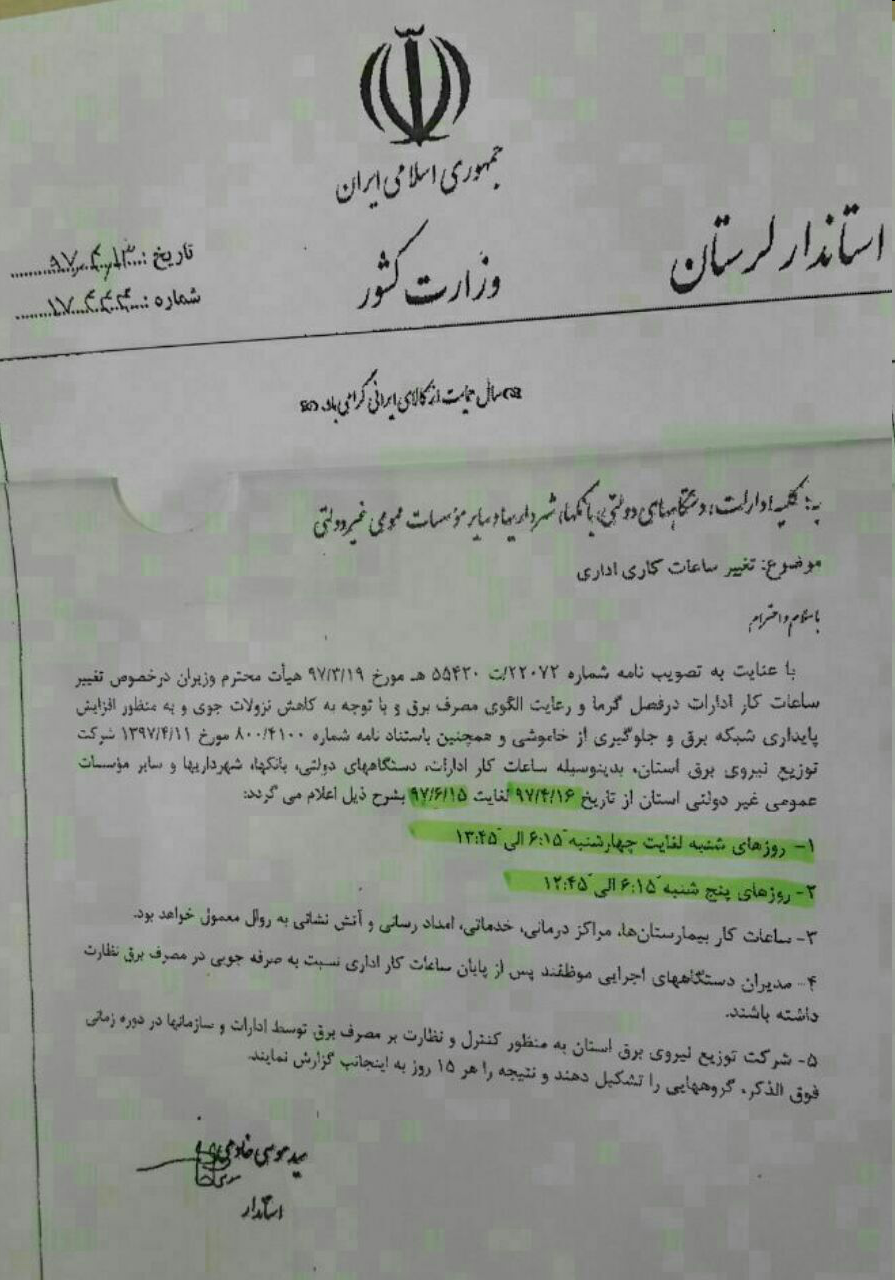 جمهوری اسلامی ایران
وزارت کشور
استاندار لرستان
تاریخ: ۹۷،۴،۱۳
شماره: ۱۷۴۴۴
سال حمایت از کالای ایرانی گرامی باد.
به: کلیه ادارات، دستگاههای دولتی، بانکها، شهرداریها و سایر مؤسسات عمومی غیر دولتی
موضوع: تغییر ساعات کاری اداری
با سلام و احترام
با عنایت به تصویب نامه شماره ۲۲۰۷۲/ت ۵۵۴۳۰ هـ مورخ ۹۷/۳/۱۹ هیأت محترم وزیران درخصوص تغییر
ساعات کار ادارات درفصل گرما و رعایت الگوی مصرف برق و با توجه به کاهش نزولات جوی و به منظور افزایش
پایداری شبکه برق و جلوگیری از خاموشی و همچنین باستناد نامه شماره ۸۰۰/۴۱۰۰ مورخ ۱۳۹۷/۴/۱۱ شرکت
توزیع نیروی برق استان، بدینوسیله ساعات کار ادارات، دستگاههای دولتی، بانکها، شهرداریها و سایر مؤسسات
عمومی غیر دولتی استان از تاریخ ۹۷/۴/۱۶ لغایت ۹۷/۶/۱۵ بشرح ذیل اعلام می گردد:
۱- روزهای شنبه لغایت چهارشنبه ۶:۱۵ الی ۱۳:۴۵
۲- روزهای پنج شنبه ۶:۱۵ الی ۱۲:۴۵
۳- ساعات کار بیمارستان‌ها، مراکز درمانی، خدماتی، امداد رسانی و آتش نشانی به روال معمول خواهد بود.
۴- مدیران دستگاههای اجرایی موظفند پس از پایان ساعات کار اداری نسبت به صرفه جویی در مصرف برق نظارت
داشته باشند.
۵- شرکت توزیع نیروی برق استان به منظور کنترل و نظارت بر مصرف برق توسط ادارات و سازمانها در دوره زمانی
فوق الذکر، گروههایی را تشکیل دهند و نتیجه را هر ۱۵ روز به اینجانب گزارش نمایند.
سید موسی خادمی
استاندار